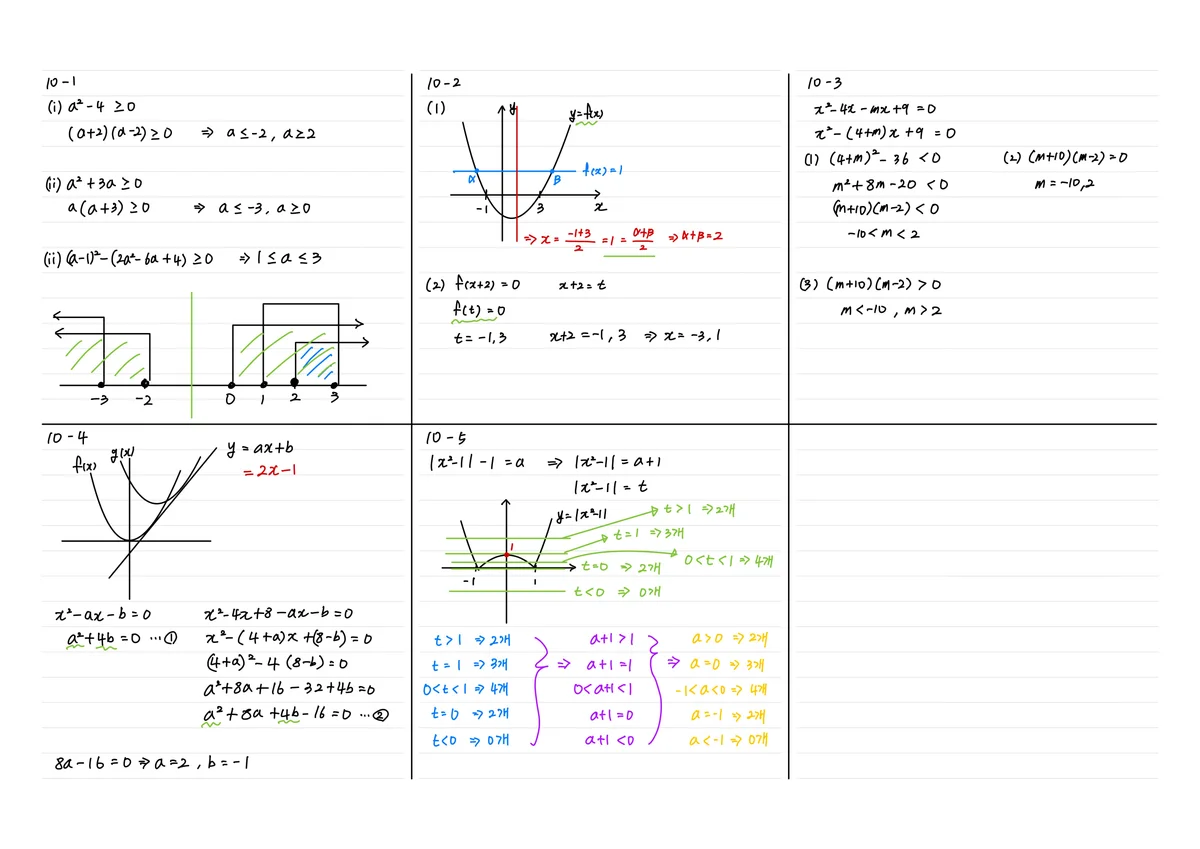 10-1
(i) a²-4 ≥0
(a+2)(a-2)≥0 ⇒ a≤-2, a≥2
(ii) a²+3a ≥0
a(a+3) ≥0 ⇒ a≤-3, a≥0
(ii) (a-1)²-(2a²-6a+4) ≥0 ⇒ 1≤a≤3
-3 -2 0 1 2 3
10-2
(1)
y
y=f(x)
f(x)=1
α β
-1 3 x
⇒ x = (-1+3)/2 = 1 = (α+β)/2 ⇒ α+β=2
(2) f(x+2)=0 x+2=t
f(t)=0
t=-1,3 x+2=-1,3 ⇒ x=-3,1
10-3
x²-4x-mx+9=0
x²-(4+m)x+9=0
(1) (4+m)²-36<0 (2) (m+10)(m-2)=0
m²+8m-20<0 m=-10,2
(m+10)(m-2)<0
-10<m<2
(3) (m+10)(m-2)>0
m<-10, m>2
10-4
f(x) g(x) y=ax+b
=2x-1
x²-ax-b=0 x²-4x+8-ax-b=0
a²+4b=0 …① x²-(4+a)x+(8-b)=0
(4+a)²-4(8-b)=0
a²+8a+16-32+4b=0
a²+8a+4b-16=0 …②
8a-16=0 ⇒ a=2, b=-1
10-5
|x²-1|-1=a ⇒ |x²-1|=a+1
|x²-1|=t
y=|x²-1|
t>1 ⇒2개
t=1 ⇒3개
0<t<1 ⇒ 4개
t=0 ⇒ 2개
t<0 ⇒ 0개
1
-1 1
t>1 ⇒2개 a+1>1 a>0 ⇒2개
t=1 ⇒3개 ⇒ a+1=1 ⇒ a=0 ⇒3개
0<t<1 ⇒ 4개 0<a+1<1 -1<a<0 ⇒ 4개
t=0 ⇒2개 a+1=0 a=-1 ⇒2개
t<0 ⇒ 0개 a+1<0 a<-1 ⇒ 0개